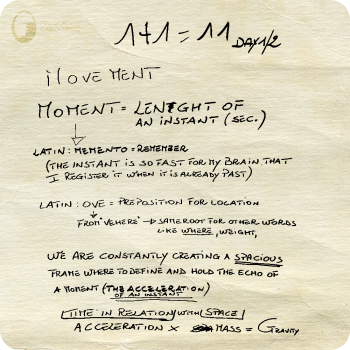 1+1 = 11 DAY 1/2
iLOVEMENT
MOMENT = LENGHT OF
AN INSTANT (SEC.)
LATIN: MEMENTO = REMEMBER
(THE INSTANT IS SO FAST FOR MY BRAIN THAT
I REGISTER IT WHEN IT IS ALREADY PAST)
LATIN: OVE = PREPOSITION FOR LOCATION
FROM "VEHERE" → SAME ROOT FOR OTHER WORDS
LIKE WHERE, WEIGHT,
WE ARE CONSTANTLY CREATING A SPACIOUS
FRAME WHERE TO DEFINE AND HOLD THE ECHO OF
A MOMENT (THE ACCELERATION
OF AN INSTANT)
TIME IN RELATION WITH SPACE
ACCELERATION X MASS = GRAVITY